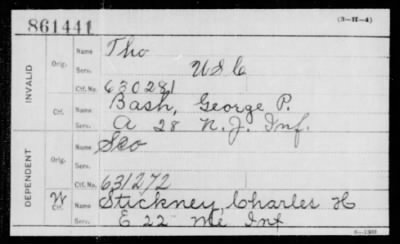 861441 (3-H-4)
INVALID
Orig. Name Tho
Serv. U S C
Ctf. No. 630281
Ctf. Name Bash, George P.
Serv. A 28 N.J. Inf.
DEPENDENT
Orig. Name Seo
Serv.
Ctf. No. 631272
W Ctf. Name Stickney, Charles H
Serv. E 22 Me Inf